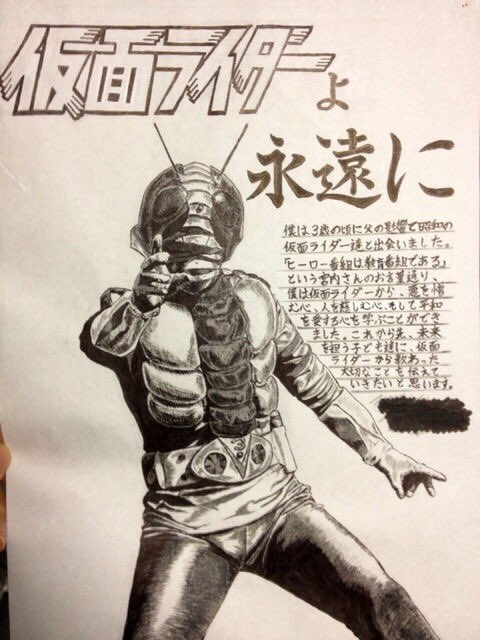 仮面ライダーよ
永遠に
僕は3歳の頃に父の影響で昭和の
仮面ライダー達と出会いました。
「ヒーロー番組は教育番組である」
という宮内さんのお言葉通り、
僕は仮面ライダーから、悪を憎
む心、人を慈しむ心、そして平和
を愛する心を学ぶことができ
ました。これから先、未来
を担う子ども達に、仮面
ライダーから教わった
大切なことを伝えて
いきたいと思います。